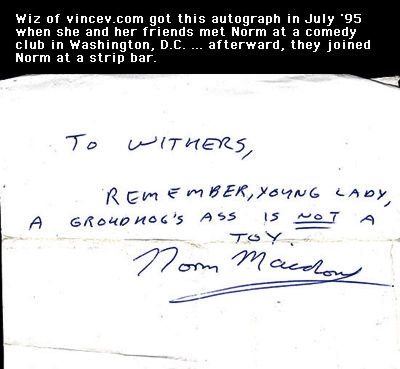 Wiz of vincev.com got this autograph in July '95
when she and her friends met Norm at a comedy
club in Washington, D.C. ... afterward, they joined
Norm at a strip bar.
TO WITHERS,
REMEMBER, YOUNG LADY,
A GROUNDHOG'S ASS IS NOT A
TOY.
Norm Macdonald